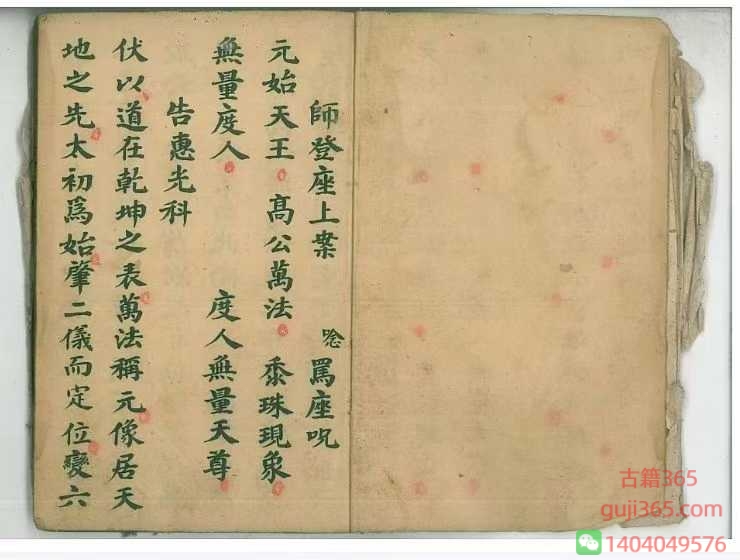 師登座上案 唸 罵座呪
元始天王 高公萬法 黍珠現象
無量度人 度人無量天尊
告惠光科
伏以道在乾坤之表萬法稱元像居天
地之先太初爲始肇二儀而定位變六
古籍365
guji365.com
1404049576